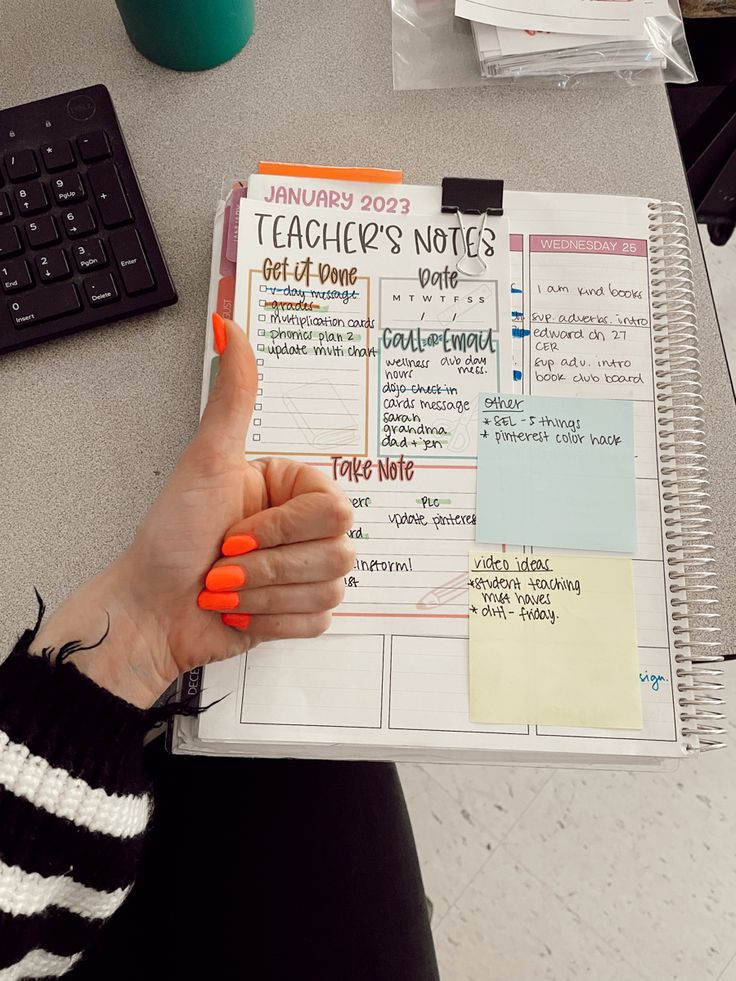 JANUARY 2023
TEACHER'S NOTES
Get it Done
v-day message
grades
multiplication cards
phonics plan 2
update multi chart
Date
M T W T F S S
/ /
Call or Email
wellness hours
club day mess.
dojo check in
cards message
sarah
grandma
dad + jen
Take Note
PLC
update pinterest
WEDNESDAY 25
I am kind books
sup. adverbs. intro
edward ch 27
CER
sup adv. intro
book club board
other
* SEL - 5 things
* pinterest color hack
video ideas
* student teaching
must haves
* ditl - friday.
sign.
DECEMBER
DELL
/
*
-
8
9
PgUp
+
5
6
1
End
2
3
PgDn
Enter
0
Insert
.
Delete